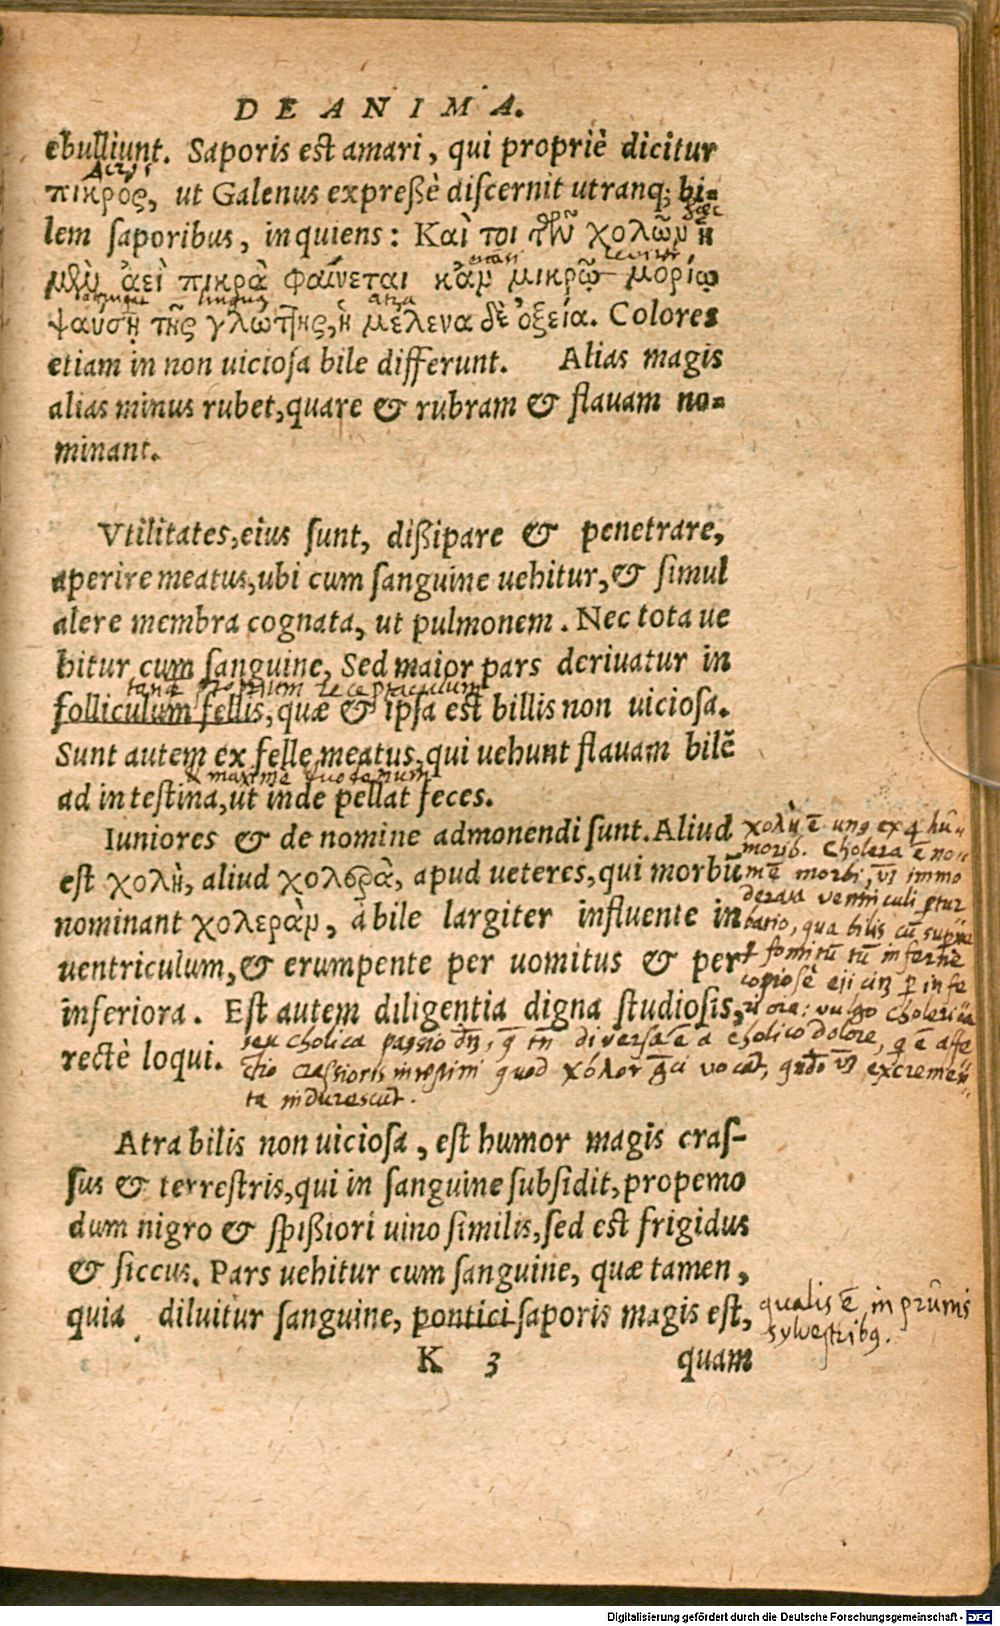 DE ANIMA.
ebulliunt. Saporis est amari, qui propriè dicitur
πικρὸς, ut Galenus expreßè discernit utranq; bi-
lem saporibus, inquiens: Καὶ τοι τῶν χολῶν ἡ
μὲν ἀεὶ πικρὰ φαίνεται κἂν μικρῷ μορίῳ
ψαύσῃ τῆς γλώττης, ἡ μέλενα δὲ ὀξεία. Colores
etiam in non uiciosa bile differunt. Alias magis
alias minus rubet, quare & rubram & flauam no-
minant.
Vtilitates, eius sunt, dißipare & penetrare,
aperire meatus, ubi cum sanguine uehitur, & simul
alere membra cognata, ut pulmonem. Nec tota ue
hitur cum sanguine, Sed maior pars deriuatur in
tanq proprium receptaculum
folliculum fellis, quæ & ipsa est billis non uiciosa.
Sunt autem ex felle meatus, qui uehunt flauam bilẽ
maxime
ad intestina, ut inde pellat feces.
Iuniores & de nomine admonendi sunt. Aliud
est χολὴ, aliud χολερὰ, apud ueteres, qui morbũ
nominant χολερὰν, à bile largiter influente in
uentriculum, & erumpente per uomitus & per
inferiora. Est autem diligentia digna studiosis,
rectè loqui.
χολὴ ē unq ex 4 hū
morib. Cholera ē no
mē morbi, vz immo
derata ventriculi ptur
batio, qua bilis cū superne
copiosè eiicitz p infe
riora: vulgo cholerica
seu cholica passio
ta indurescūt.
Atra bilis non uiciosa, est humor magis cras-
sus & terrestris, qui in sanguine subsidit, propemo
dum nigro & spißiori uino similis, sed est frigidus
& siccus. Pars uehitur cum sanguine, quæ tamen,
quia diluitur sanguine, pontici saporis magis est,
qualis ē in prunis
sylvestribq.
K 3 quam
Digitalisierung gefördert durch die Deutsche Forschungsgemeinschaft - DFG